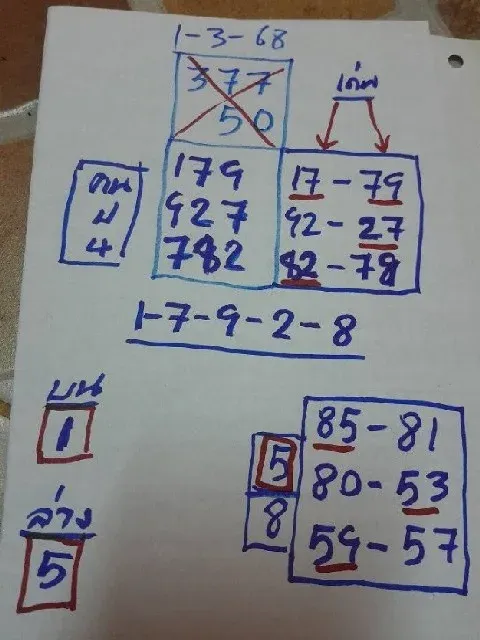 1-3-68
377
50
เด่น
179
927
782
17-79
92-27
82-78
1-7-9-2-8
บน
1
ล่าง
5
5
8
85-81
80-53
59-57